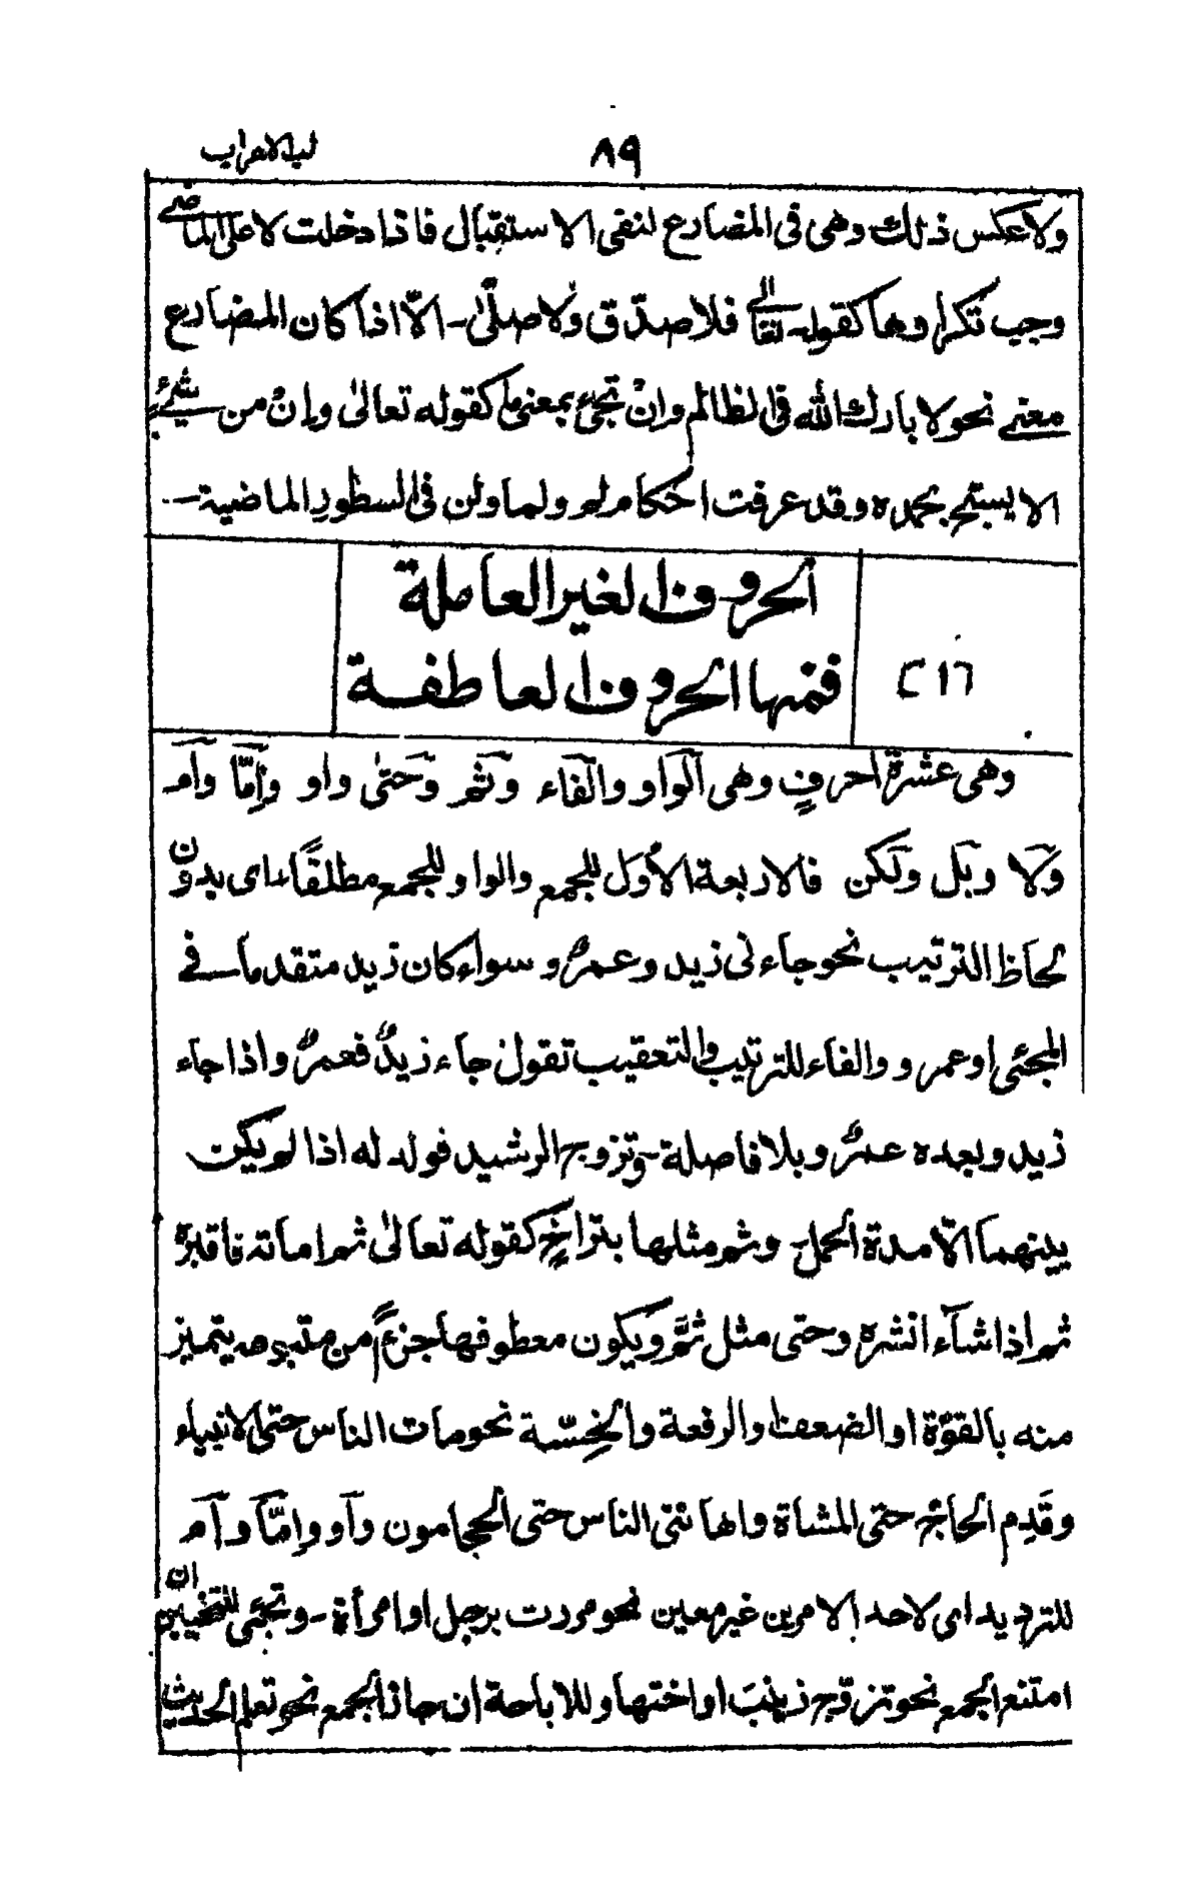 ٨٩ لب الاعراب
ولا عكس ذلك وهى فى المضارع لنفى الاستقبال فاذا دخلت لا على الماضے
وجب تكرارها كقوله تعالىٰ فلا صدّق ولا صلّىٰ - الّا اذا كان المضارع
معنے نحو لا بارك الله فى الظالم وانْ تجئ بمعنى ما كقوله تعالىٰ وإنْ من شےءٍ
الا يسبّح بحمده وقد عرفت احكام لم ولما ولن فى السطور الماضية -
الحروف الغير العاملة
فمنها الحروف العاطفة
وهى عشرة احرفٍ وهى الواو والفاء وثم وحتىٰ واو وإمّا وام
ولا وبل ولكن فالاربعة الأُوَل للجمع والواو للجمع مطلقًا اى بدون
لحاظ الترتيب نحو جاءنى زيد وعمرٌو سواء كان زيد متقدما فے
المجئى او عمرو والفاء للترتيب والتعقيب تقول جاء زيدٌ فعمرٌو اذا جاء
زيد وبعده عمرٌو بلا فاصلة وتزوج الرشيد فولد له اذا لم يكن
بينهما الّا مدة الحمل - وثم مثلها بتراخٍ كقوله تعالىٰ ثم اماته فاقبرهٗ
ثم اذا شآء انشره وحتى مثل ثمّ ويكون معطوفها جزءً من متبوعه يتميز
منه بالقوّة او الضعف والرفعة والخِسّة نحو مات الناس حتى الانبياء
وقَدِم الحاجّ حتى المشاة واهانتى الناس حتى الحجامون وأو وإمّا وأم
للترديد اى لاحد الامرين غير معين نحو مررت برجل او امرأة - وتجئى للتخيير ان
امتنع الجمع نحو تزوّج زينبَ او اختها وللاباحة ان جاز الجمع نحو تعلم الحديث